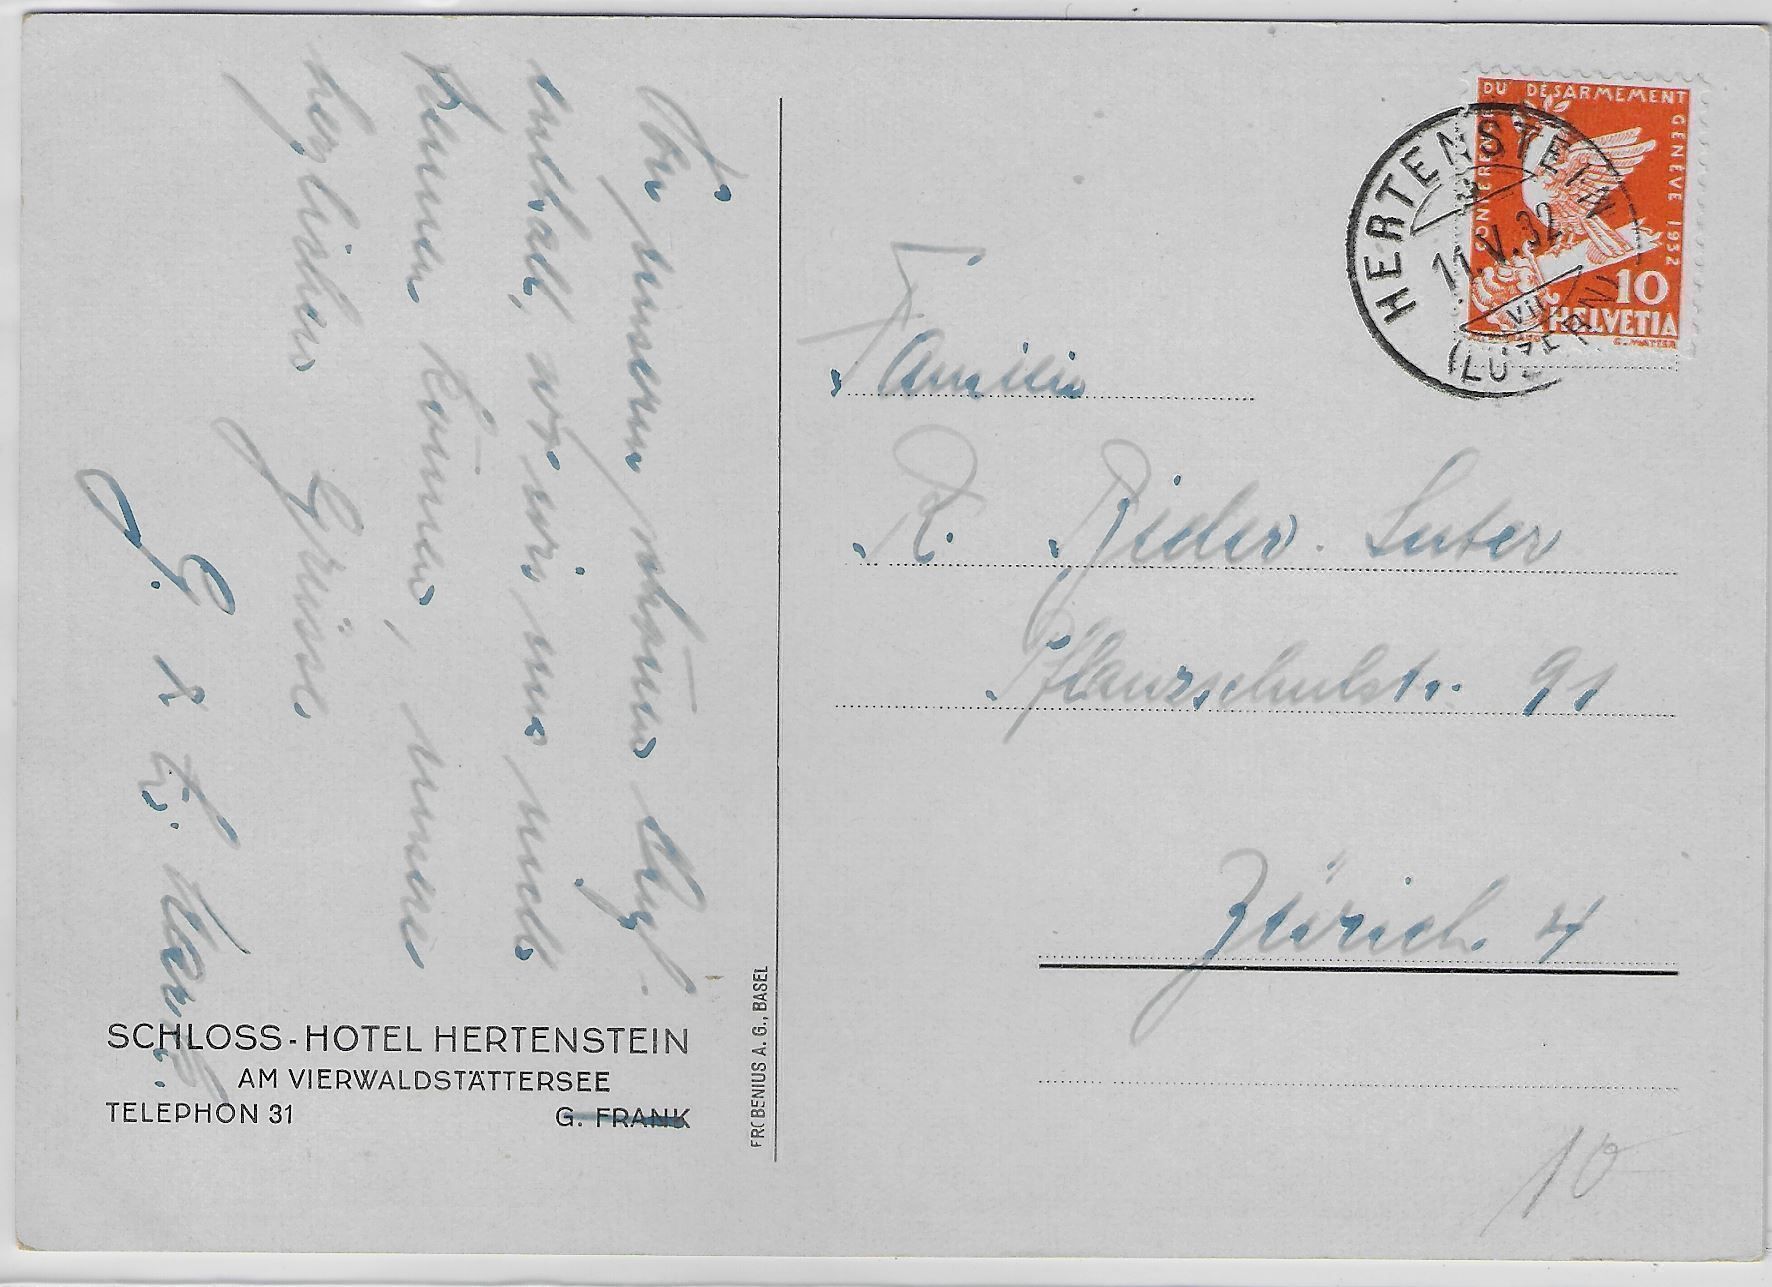 Von unserm schönen Auf-
enthalt, wo wir uns auch
freuen können, unsere
herzlichen Grüsse.
G. & E.
SCHLOSS-HOTEL HERTENSTEIN
AM VIERWALDSTÄTTERSEE
TELEPHON 31
G. FRANK
FROBENIUS A. G., BASEL
CONFERENCE DU DESARMEMENT GENEVE 1932
10
HELVETIA
HERTENSTEIN
11.V.32
VII
(LUZERN)
Familie
R. Rieder-Suter
Pflanzschulstr. 91
Zürich 4
10